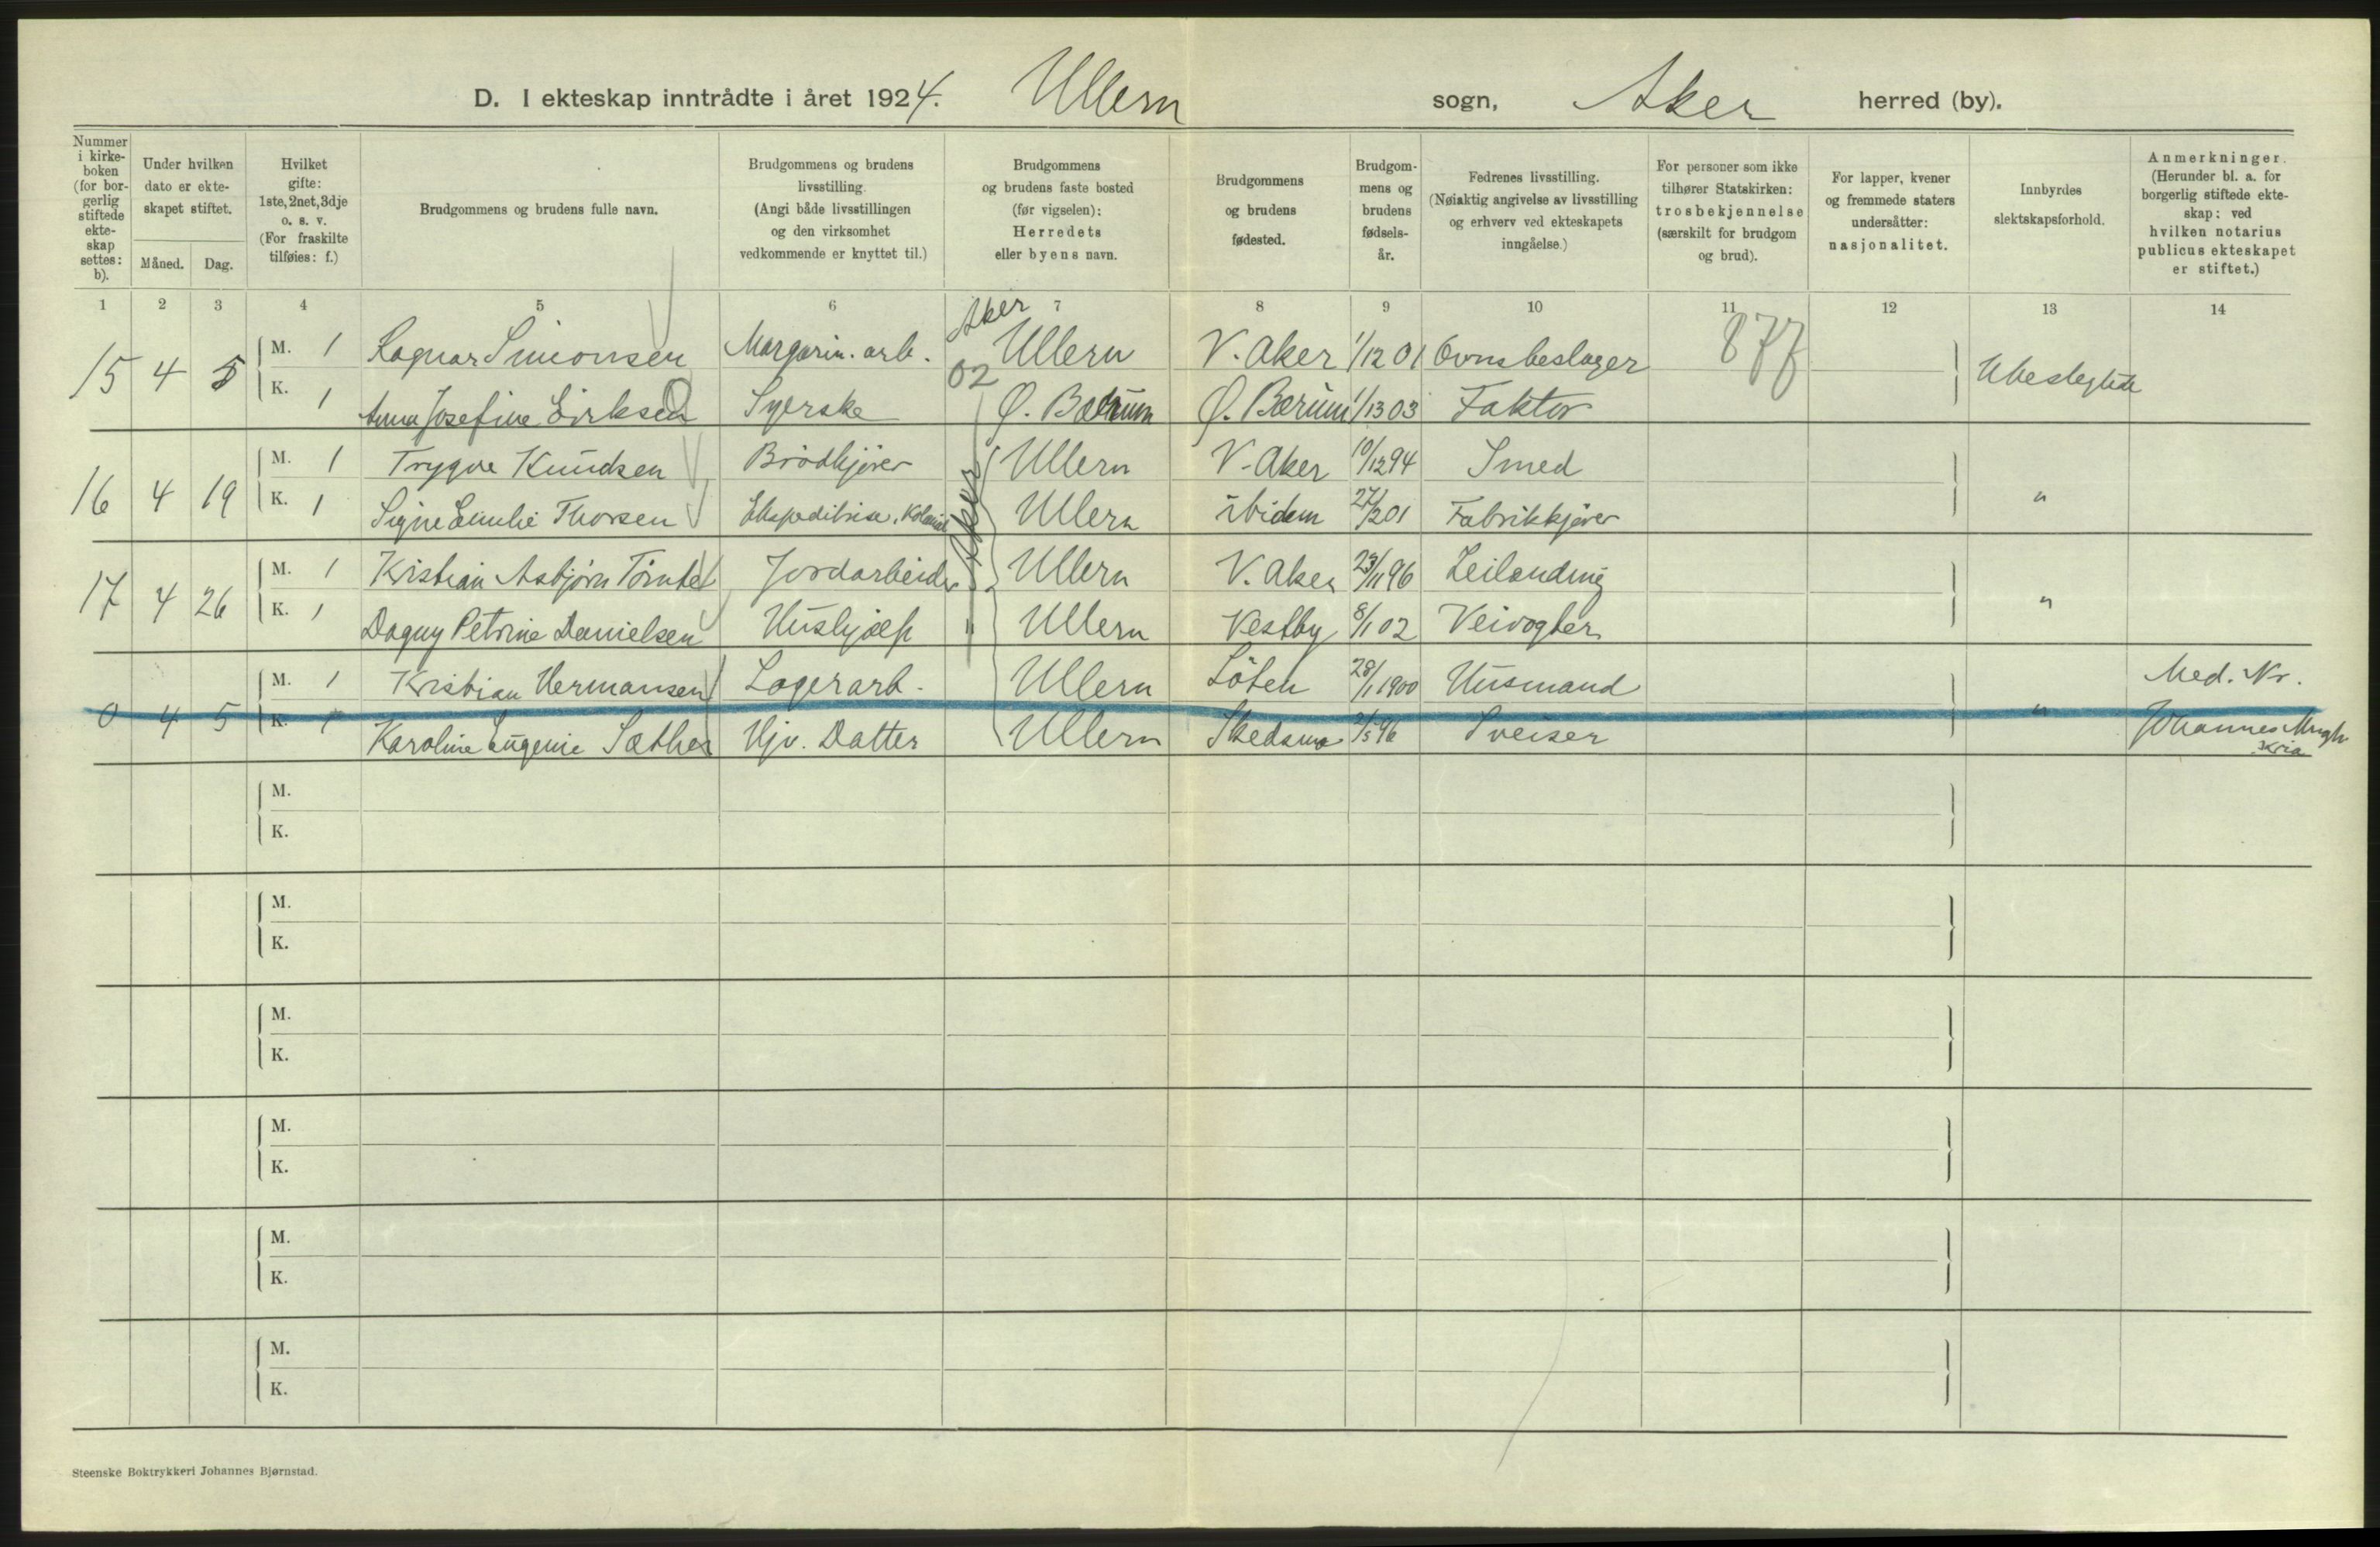 D. I ekteskap inntrådte i året 1924. Ullern sogn, Aker herred (by).
Nummer i kirke- boken (for bor- gerlig stiftede ekte- skap settes: b).
Under hvilken dato er ekte- skapet stiftet.
Måned. Dag.
Hvilket gifte: 1ste, 2net, 3dje o. s. v. (For fraskilte tilføies: f.)
Brudgommens og brudens fulle navn.
Brudgommens og brudens livsstilling. (Angi både livsstillingen og den virksomhet vedkommende er knyttet til.)
Brudgommens og brudens faste bosted (før vigselen): Herredets eller byens navn.
Brudgommens og brudens fødested.
Brudgom- mens og brudens fødsels- år.
Fedrenes livsstilling. (Nøiaktig angivelse av livsstilling og erhverv ved ekteskapets inngåelse.)
For personer som ikke tilhører Statskirken: trosbekjennelse (særskilt for brudgom og brud).
For lapper, kvener og fremmede staters undersåtter: nasjonalitet.
Innbyrdes slektskapsforhold.
Anmerkninger. (Herunder bl. a. for borgerlig stiftede ekte- skap: ved hvilken notarius publicus ekteskapet er stiftet.)
1 2 3 4 5 6 7 8 9 10 11 12 13 14
Aker
15 4 5 M. 1 Ragnar Simonsen Margarin. arb. Ullern V. Aker 1/12 01 Ovnsbeslager 877 Ubeslegtede
02
K. 1 Anna Josefine Eriksen Syerske Ø. Bærum Ø. Bærum 1/13 03 Faktor
16 4 19 M. 1 Trygve Knudsen Brödkjörer Ullern V. Aker 10/12 94 Smed "
K. 1 Signe Emilie Thorsen Ekspeditrise, Kolonial Aker Ullern ibidem 27/2 01 Fabrikkjörer
17 4 26 M. 1 Kristian Asbjörn Jordarbeider Ullern V. Aker 23/11 96 Leilending "
K. 1 Dagny Petrine Danielsen Hushjælp " Ullern Vestby 8/1 02 Veivogter
0 4 5 M. 1 Kristian Hermansen Lagerarb. Ullern Löten 28/1 1900 Husmand " Med. Nr.
K. 1 Karoline Eugenie Sæther Hjv. Datter Ullern Skedsmo 2/5 96 Sveiser Johannes Kria
M.
K.
M.
K.
M.
K.
M.
K.
M.
K.
M.
K.
Steenske Boktrykkeri Johannes Bjørnstad.